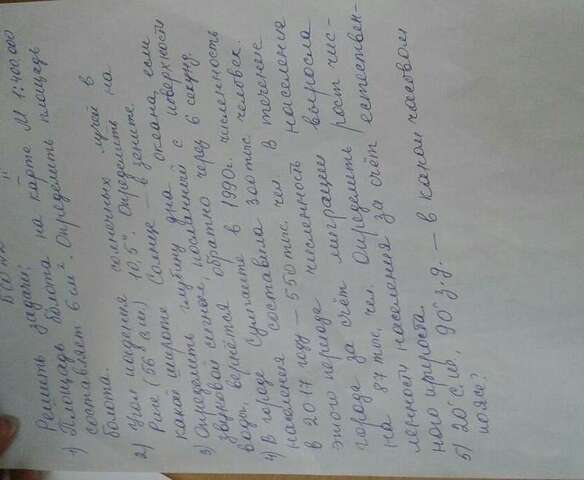 Решить задачи:
1) Площадь болота на карте М 1:400.000
составляет 6 см². Определить площадь
болота.
2) Угол падения солнечных лучей в
Риге (56° с.ш) 10,5°. Определить на
какой широте Солнце – в зените.
3) Определить глубину дна океана, если
звуковой сигнал, посланный с поверхности
воды, вернётся обратно через 6 секунд.
4) В городе Сумгаите в 1990г. численность
населения составила 300 тыс человек.
в 2017 году – 550 тыс. чел. В течение
этого периода численность население
города за счёт миграции выросла
на 87 тыс. чел. Определить рост чис-
ленности населения за счёт естествен-
ного прироста.
5) 20° с.ш., 90° з.д. – в каком часовом
поясе?